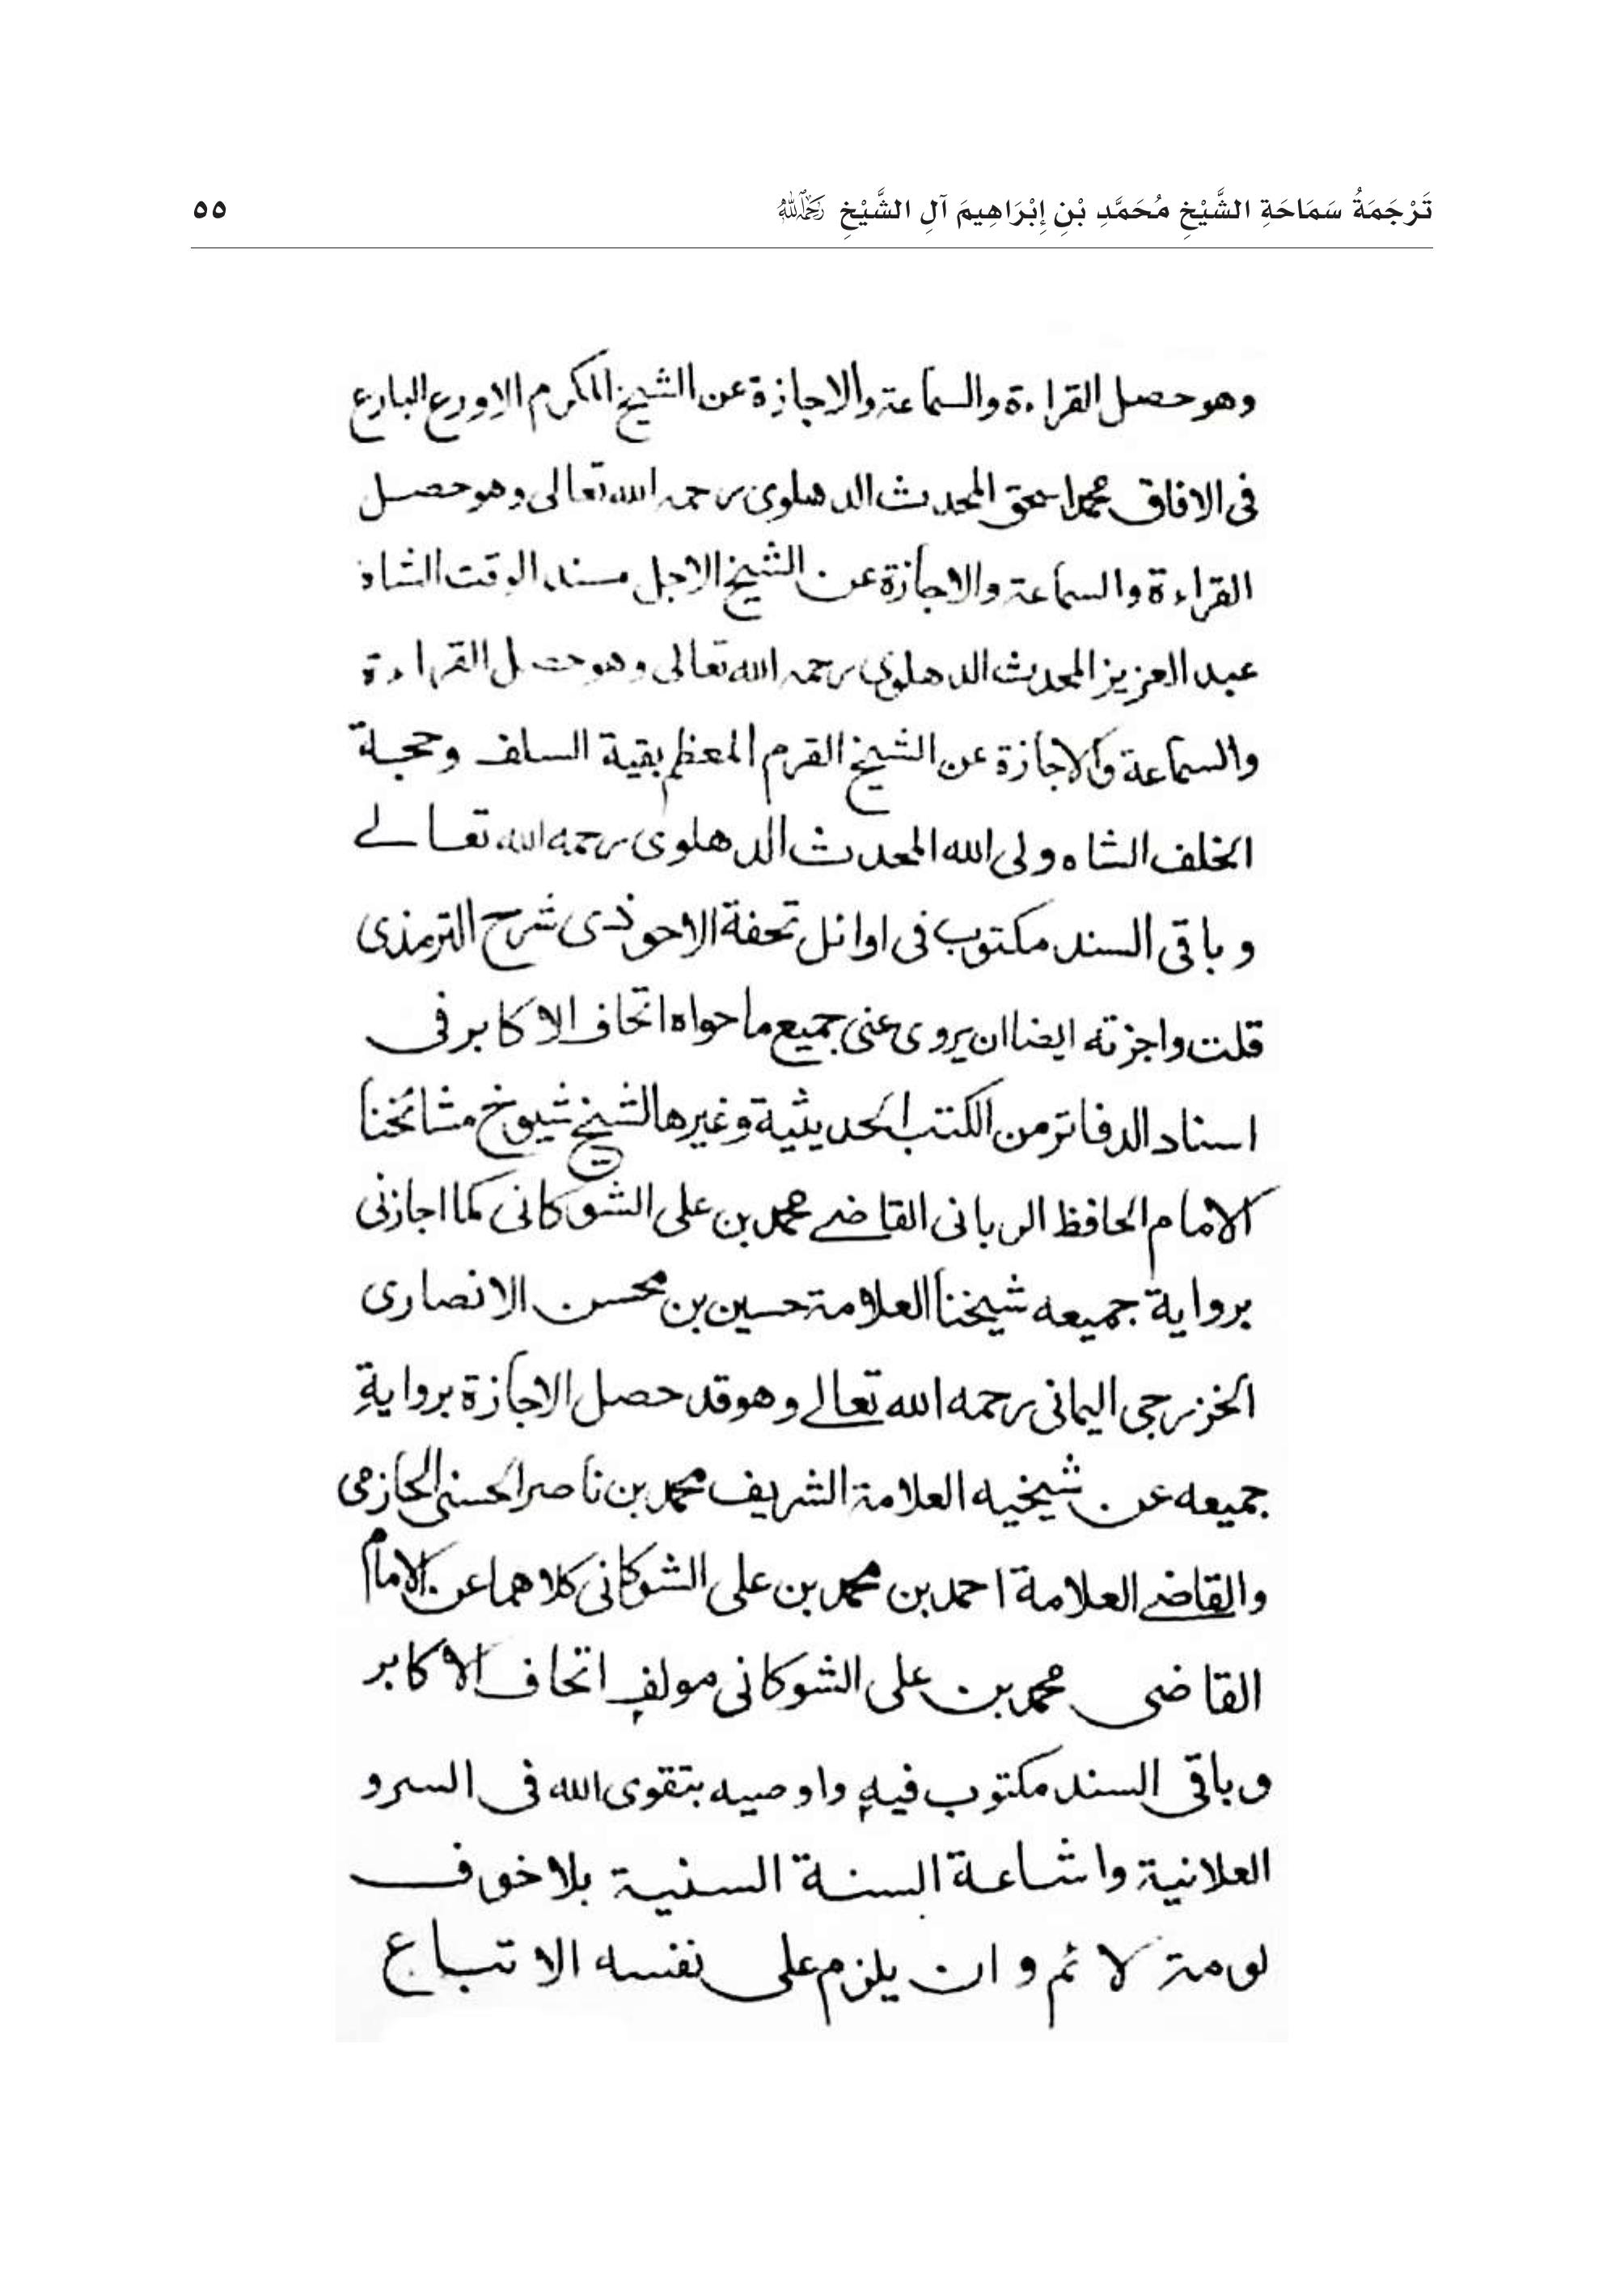 تَرْجَمَةُ سَمَاحَةِ الشَّيْخِ مُحَمَّدِ بْنِ إِبْرَاهِيمَ آلِ الشَّيْخِ رَحِمَهُ اللَّهُ ٥٥
وهو حصل القراءة والسماعة والاجازة عن الشيخ المكرم الاورع البارع
فى الافاق محمد اسحق المحدث الدهلوى رحمه الله تعالى وهو حصل
القراءة والسماعة والاجازة عن الشيخ الاجل مسند الوقت الشاه
عبد العزيز المحدث الدهلوى رحمه الله تعالى وهو حصل القراءة
والسماعة والاجازة عن الشيخ القرم المعظم بقية السلف وحجة
الخلف الشاه ولى الله المحدث الدهلوى رحمه الله تعالے
وباقى السند مكتوب فى اوائل تحفة الاحوذى شرح الترمذى
قلت واجزته ايضا ان يروى عنى جميع ما حواه اتحاف الاكابر فى
اسناد الدفاتر من الكتب الحديثية وغيرها لشيخ شيوخ مشائخنا
الامام الحافظ الربانى القاضے محمد بن على الشوكانى كما اجازنى
برواية جميعه شيخنا العلامة حسين بن محسن الانصارى
الخزرجى اليمانى رحمه الله تعالے وهو قد حصل الاجازة بروايةِ
جميعه عن شيخيه العلامة الشريف محمد بن ناصر الحسنى الحازمى
والقاضے العلامة احمد بن محمد بن على الشوكانى كلاهما عن الامام
القاضى محمد بن على الشوكانى مولفِ اتحاف الاكابر
وباقى السند مكتوب فيهِ واوصيه بتقوى الله فى السر و
العلانية واشاعة السنة السنية بلا خوف
لومة لائم وان يلزم على نفسه الاتباع